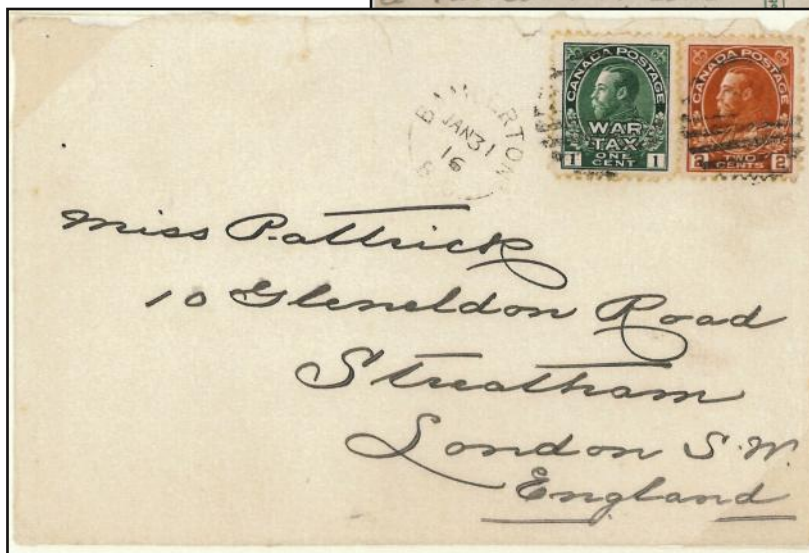 CANADA POSTAGE
WAR
TAX
ONE
CENT
1 1
CANADA POSTAGE
2 TWO 2
CENTS
JAN 31
16
Miss Pattrick
10 Gleneldon Road
Streatham
London S.W.
England